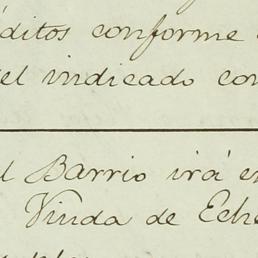 éditos conforme
el indicado con
l Barrio irá en
Viuda de Eche